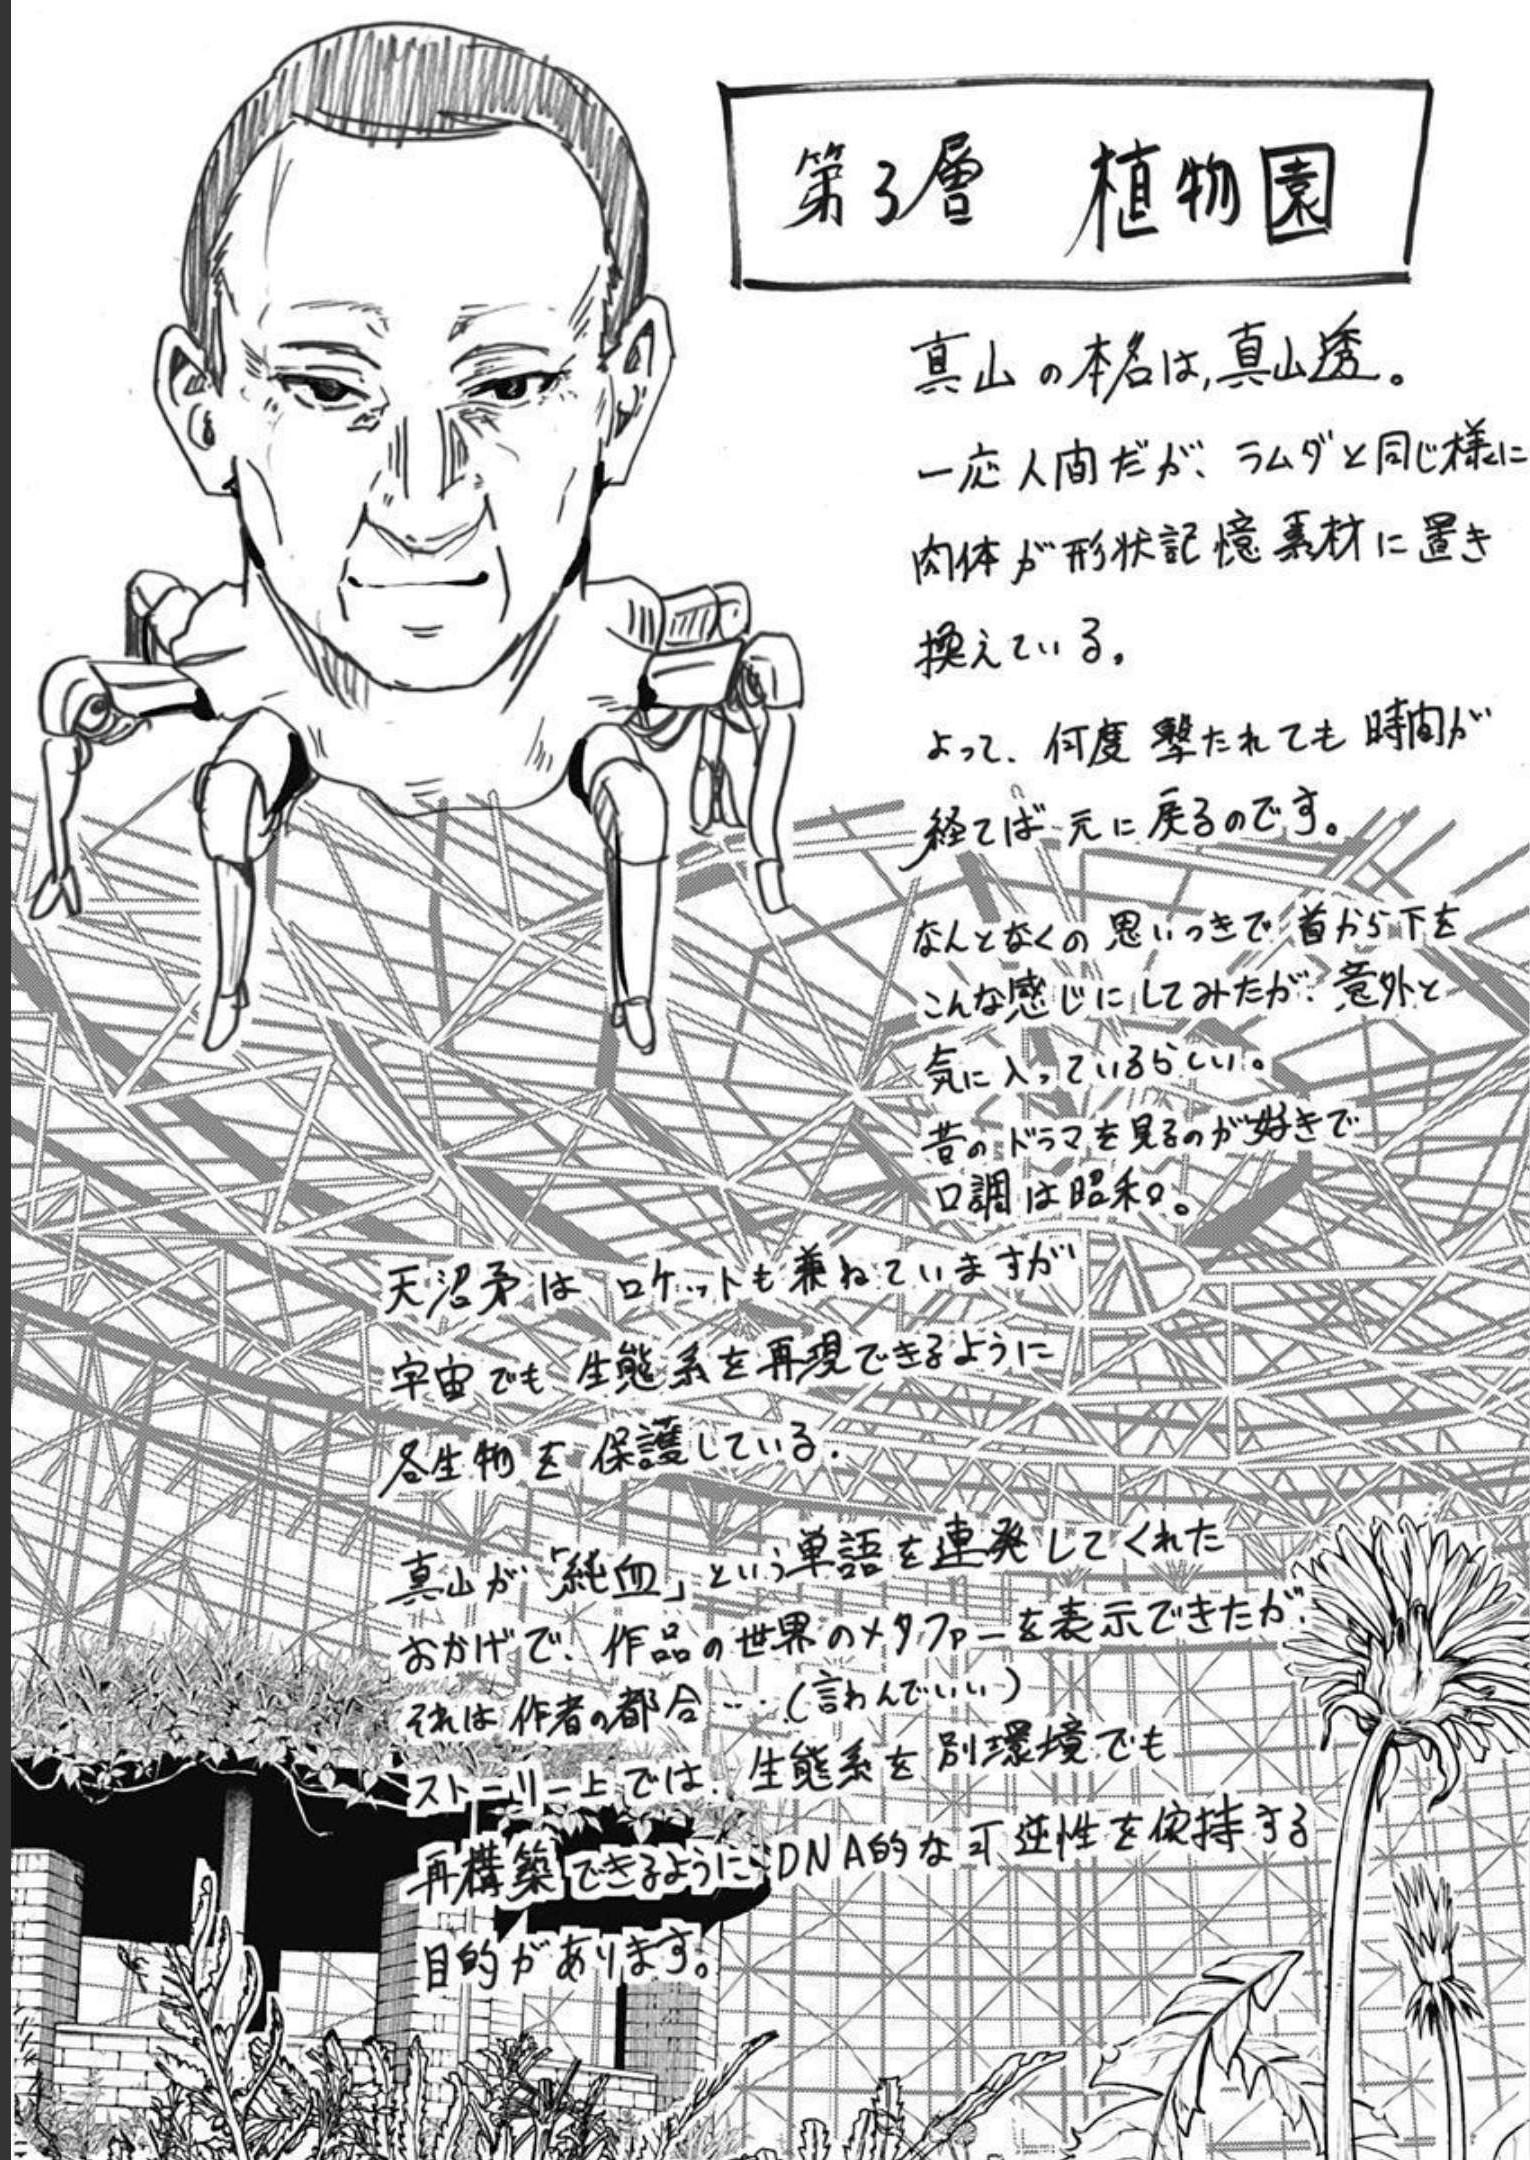 第3層 植物園
真山の本名は、真山透。
一応人間だが、ラムダと同じ様に
肉体が形状記憶素材に置き
換えている。
よって、何度撃たれても時間が
経てば元に戻るのです。
なんとなくの思いつきで首から下を
こんな感じにしてみたが、意外と
気に入っているらしい。
昔のドラマを見るのが好きで
口調は昭和。
天沼矛はロケットも兼ねていますが
宇宙でも生態系を再現できるように
各生物を保護している.
真山が「純血」という単語を連発してくれた
おかげで、作品の世界のメタファーを表示できたが、
それは作者の都合…(言わんでいい)
ストーリー上では、生態系を別環境でも
再構築できるようにDNA的な可逆性を保持する
目的があります。